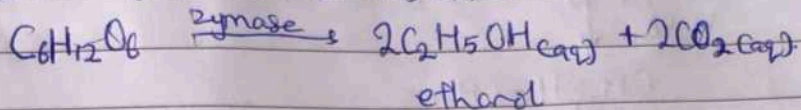 C6H12O6 zymase → 2C2H5OH(aq) + 2CO2(aq).
ethanol